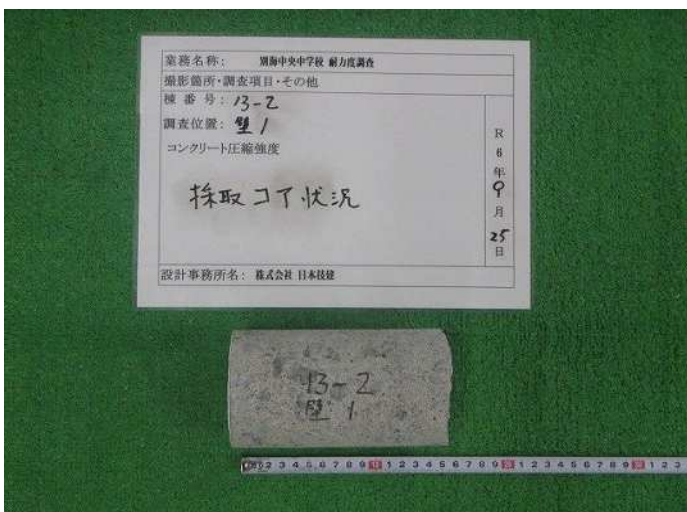 業務名称： 別海中央中学校 耐力度調査
撮影箇所・調査項目・その他
棟番号：13-2
調査位置：壁1
コンクリート圧縮強度
採取コア状況
R
6
年
9
月
25
日
設計事務所名： 株式会社 日本技建
13-2
壁 1
2 3 4 5 6 7 8 9 10 1 2 3 4 5 6 7 8 9 20 1 2 3 4 5 6 7 8 9 30 1 2 3